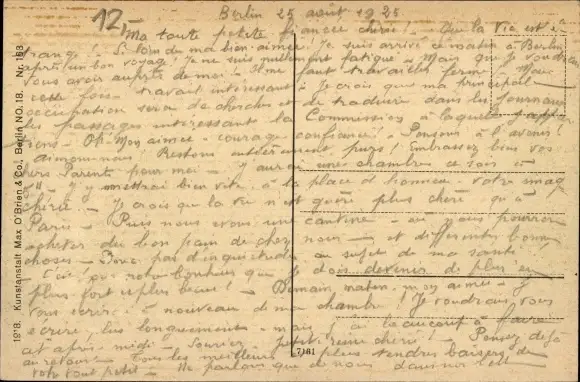 12,
Berlin 25 août 1925
Ma toute petite fiancée chérie! Que la vie est é-
trange! Si loin de ma bien-aimée! Je suis arrivé ce matin à Berlin
après un bon voyage! Je ne suis nullement fatigué. Mais que je voudrais
vous avoir auprès de moi! Il me faut travailler ferme. Mais
cette fois travail intéressant! Je crois que ma principale
occupation sera de chercher et de traduire dans les journaux
les passages intéressants la Commission à laquelle j'appar-
tiens. Oh! Mon aimée courage confiance! Pensons à l'avenir!
aimons-nous. Restons entièrement purs! Embrassez bien vos
chers Parents pour moi. J'aurai une chambre ce soir
J'y mettrai bien vite, à la place d'honneur votre image
chérie. Je crois que la vie n'est guère plus chère qu'à
Paris. Puis nous avons une cantine où nous pourrons
acheter du bon pain de chez nous et différentes bonnes
choses. Donc pas d'inquiétude au sujet de ma santé
C'est par notre bonheur que je dois devenir de plus en
plus fort et plus beau! Demain matin, mon aimée, je
vous écrirai à nouveau de ma chambre! Je voudrais vous
écrire plus longuement mais j'ai beaucoup à faire
cet après-midi. Souriez petite reine chérie! Pensez déjà
au retour! Tous les meilleurs plus tendres baisers de
votre tout petit. Ne parlons que de nous
Nr. 183
Kunstanstalt Max O'Brien & Co., Berlin NO.18.
7181